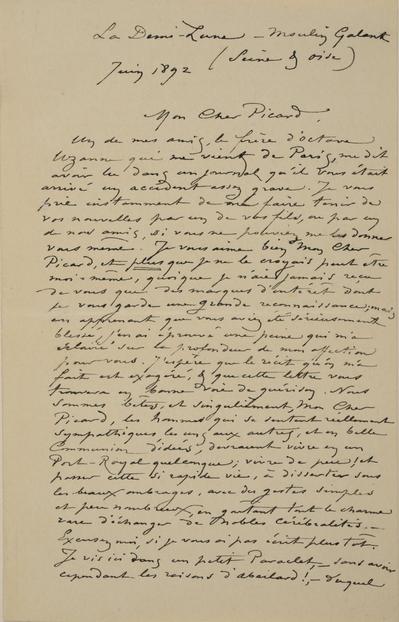 La Demi-Lune – Moulin Galant
(Seine & oise)
Juin 1892
Mon Cher Picard,
Un de mes amis, le frère d'octave
Uzanne qui me vient de Paris, me dit
avoir lu dans un journal qu'il vous était
arrivé un accident assez grave. Je vous
prie instamment de me faire tenir de
vos nouvelles par un de vos fils, ou par un
de nos amis, si vous ne pouviez me les donner
vous même. Je vous aime bien Mon Cher
Picard, et plus que je ne le croyais peut être
moi-même, quoique je n'aie jamais reçu
de vous que des marques d'intérêt dont
je vous garde une grande reconnaissance; mais
en apprenant que vous aviez été sérieusement
blessé, j'en ai éprouvé une peine qui m'a
éclairé sur la profondeur de mon affection
pour vous. J'espère que le récit qu'on m'a
fait est exagéré, & que cette lettre vous
trouvera en bonne voie de guérison. Nous
sommes bêtes, et singulièrement, Mon Cher
Picard, les hommes qui se sentent réellement
sympathiques les uns aux autres, et en belle
Communion d'idées, devraient vivre en un
Port-Royal quelconque; vivre de peu, et
passer cette si rapide vie, à disserter sous
les beaux ombrages, avec des gestes simples
et peu nombreux, en goûtant tout le charme
rare d'échanger de nobles cérébralités. –
Excusez moi, si je vous ai pas écrit plus tôt.
Je vis ici dans un petit Paraclet, – sans avoir
cependant les raisons d'abailard! – duquel